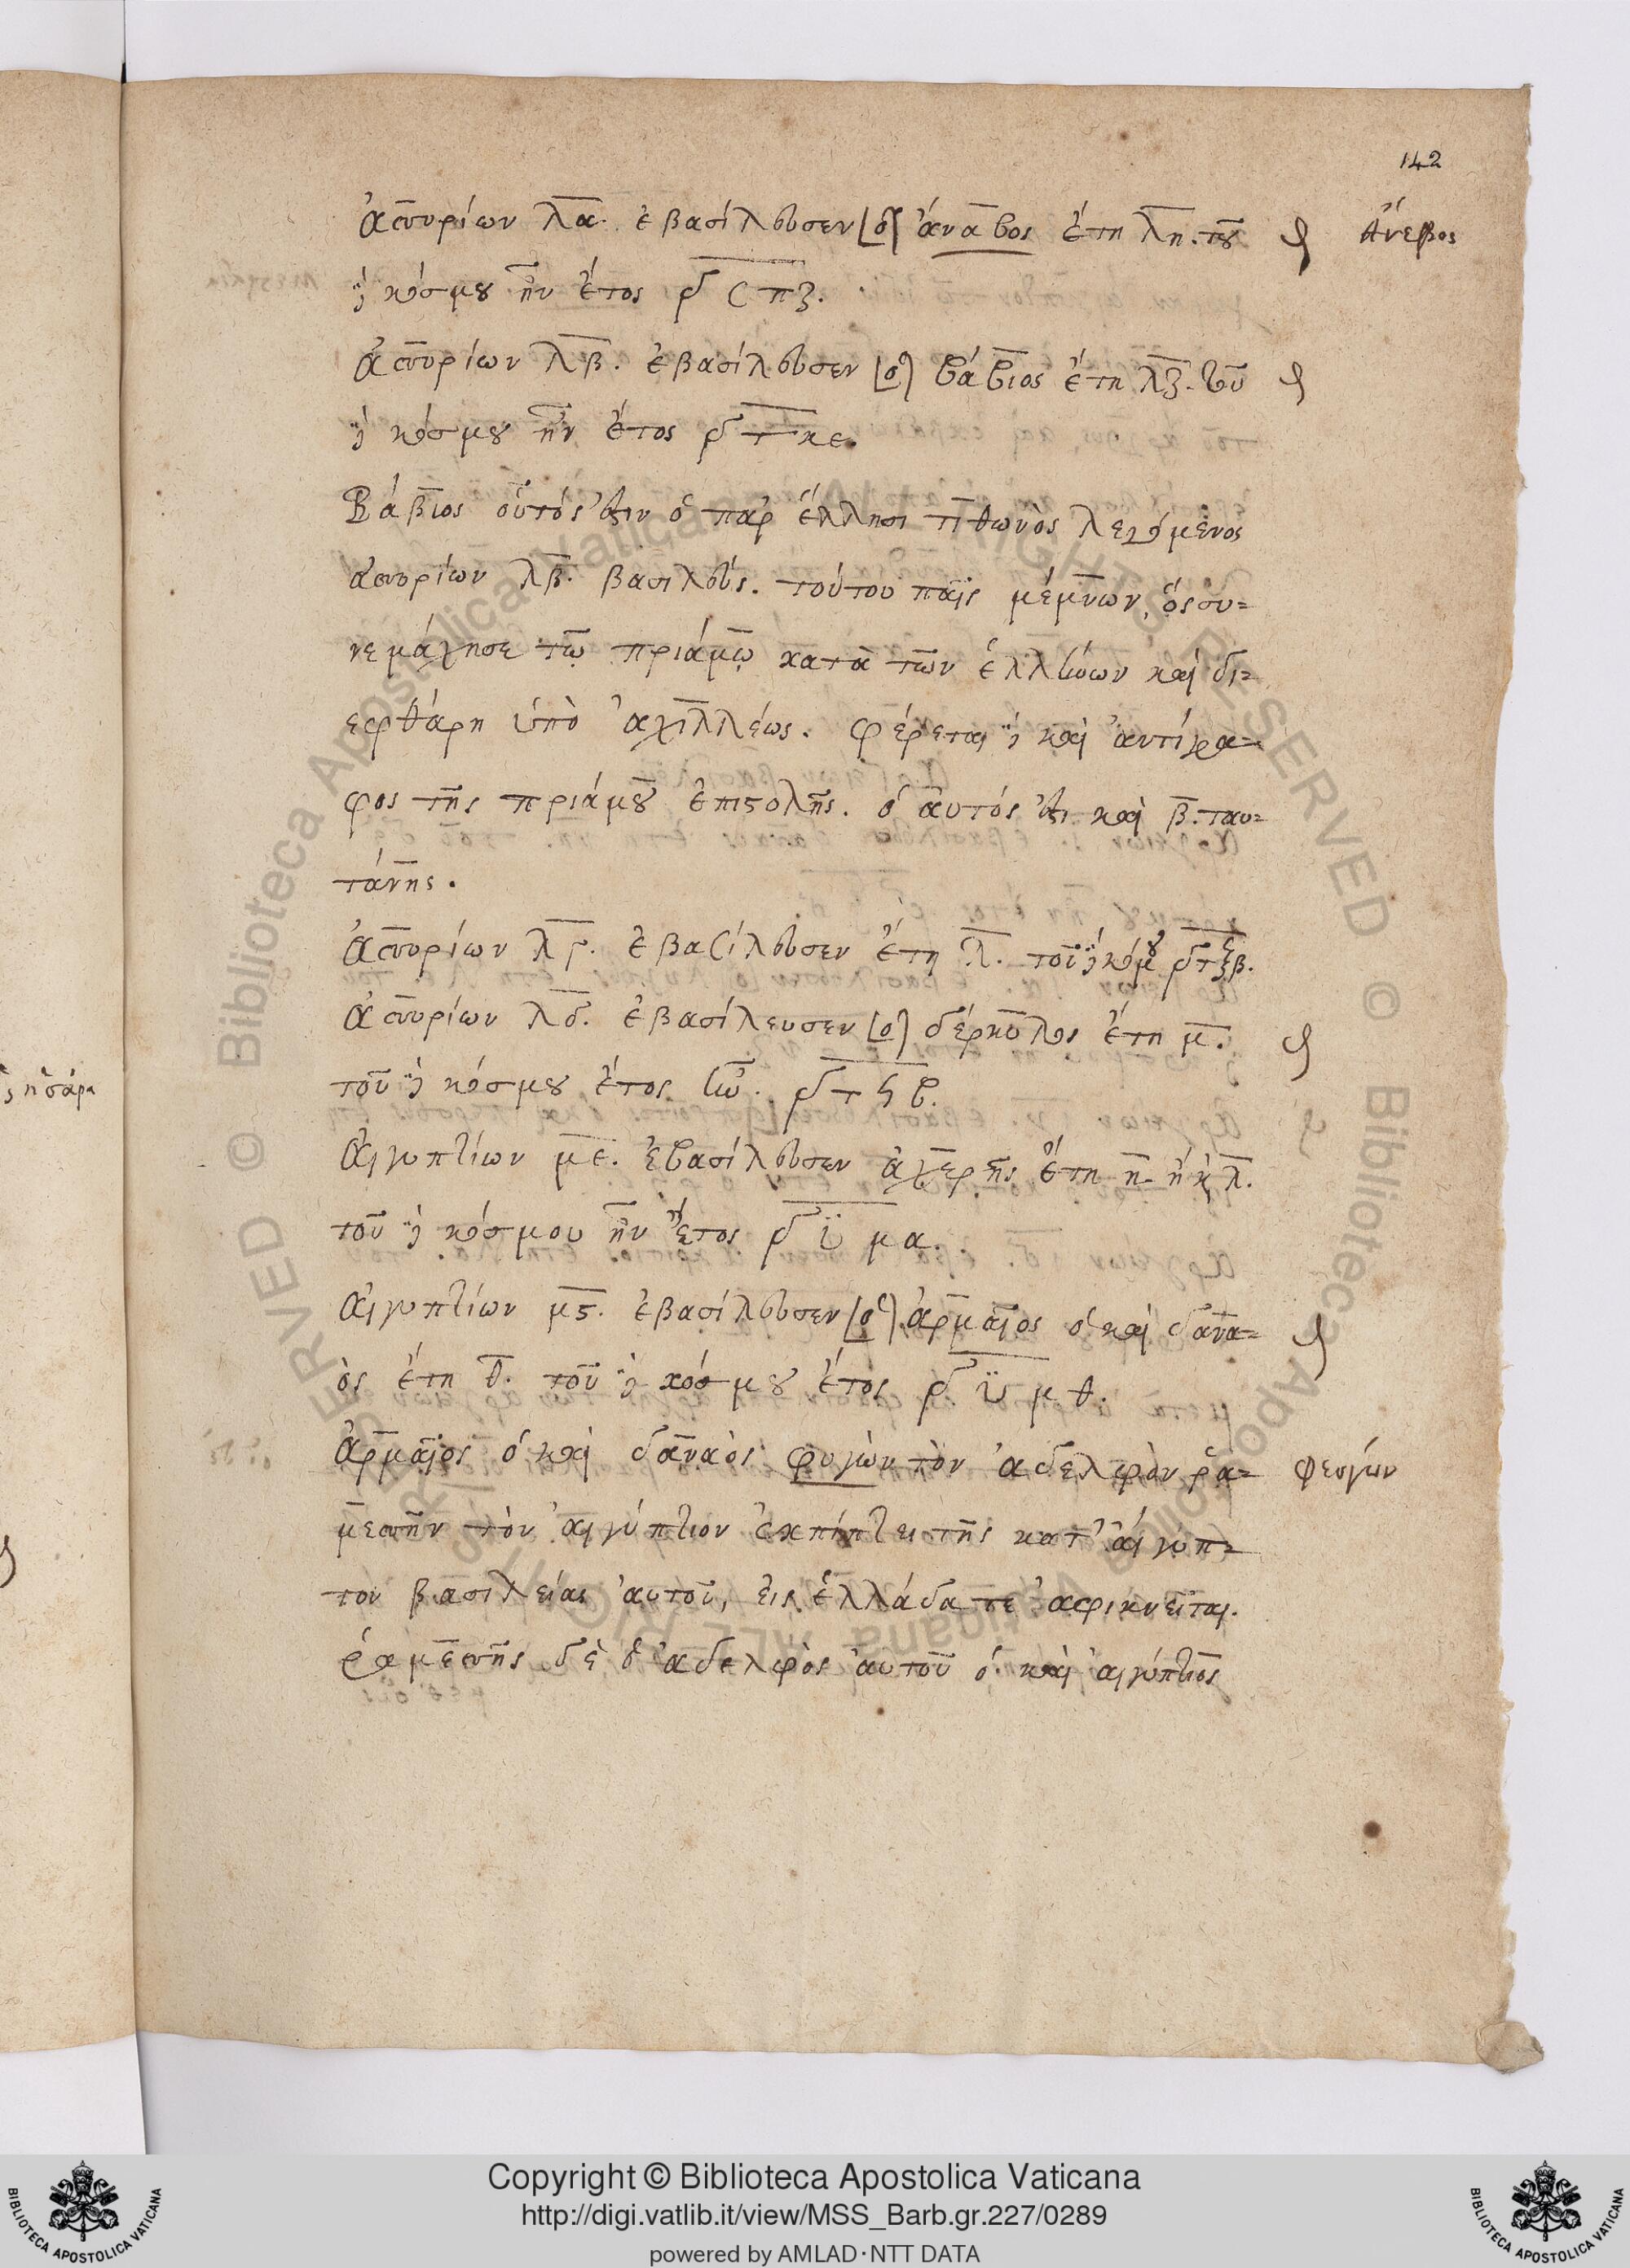 142
Ἀσσυρίων λ̅α̅. ἐβασίλευσεν [ὁ] ἄναβος ἔτη λ̅η̅. τοῦ Ἄνεβος
δὲ κόσμου ἦν ἔτος ͵δ̅σ̅π̅ζ̅.
Ἀσσυρίων λ̅β̅. ἐβασίλευσεν [ὁ] βάβιος ἔτη λ̅ζ̅. τοῦ
δὲ κόσμου ἦν ἔτος ͵δ̅τ̅κ̅ε̅.
Βάβιος οὗτός ἐστιν ὁ παρ' ἕλλησι τιθωνὸς λεγόμενος
ἀσσυρίων λ̅β̅. βασιλεύς. τούτου παῖς μέμνων, ὃς συ-
νεμάχησε τῷ πριάμῳ κατὰ τῶν ἑλλήνων καὶ δι-
εφθάρη ὑπὸ ἀχιλλέως. φέρεται δὲ καὶ ἀντίγρα-
φος τῆς πριάμου ἐπιστολῆς. ὁ αὐτός ἐστι καὶ β̅. ταυ-
τάνης.
Ἀσσυρίων λ̅γ̅. ἐβασίλευσεν ἔτη λ̅. τοῦ δὲ κόσμου ͵δ̅τ̅ξ̅β̅.
Ἀσσυρίων λ̅δ̅. ἐβασίλευσεν [ὁ] δέρκυλος ἔτη μ̅.
τοῦ δὲ κόσμου ἔτος ἦν. ͵δ̅τ̅ϟ̅β̅.
Αἰγυπτίων μ̅ε̅. ἐβασίλευσεν ἀχερῆς ἔτη η̅. ἢ κ̣ λ̅.
τοῦ δὲ κόσμου ἦν ἔτος ͵δ̅ϋ̅μ̅α̅.
Αἰγυπτίων μ̅ϛ̅. ἐβασίλευσεν [ὁ] ἁρμαῖος ὁ καὶ δανα-
ὸς ἔτη θ̅. τοῦ δὲ κόσμου ἔτος ͵δ̅ϋ̅μ̅θ̅.
Ἁρμαῖος ὁ καὶ δαναὸς φυγὼν τὸν ἀδελφὸν ῥα- φεύγων
μεσσῆν τὸν αἰγύπτιον ἐκπίπτει τῆς κατ' αἴγυπ-
τον βασιλείας αὐτοῦ, εἰς ἑλλάδα τε ἀφικνεῖται.
ῥαμεσσῆς δὲ ὁ ἀδελφὸς αὐτοῦ ὁ καὶ αἰγύπτιος
Copyright © Biblioteca Apostolica Vaticana
http://digi.vatlib.it/view/MSS_Barb.gr.227/0289
powered by AMLAD·NTT DATA